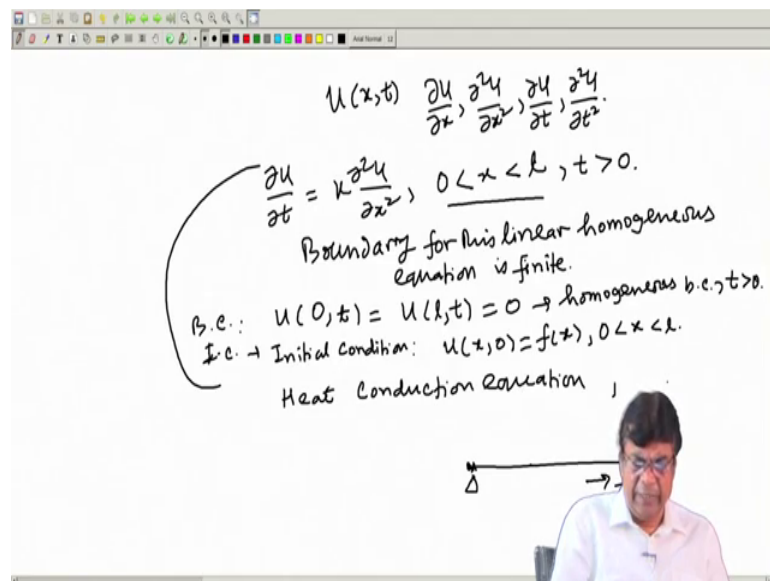 Arial Normal 12
U(x,t) ∂U/∂x, ∂²U/∂x², ∂U/∂t, ∂²U/∂t².
∂U/∂t = K ∂²U/∂x², 0 < x < l, t > 0.
Boundary for this linear homogeneous
equation is finite.
B.C.: U(0,t) = U(l,t) = 0 → homogeneous b.c., t>0.
I.C. → Initial Condition: U(x,0) = f(x), 0 < x < l.
Heat Conduction equation,